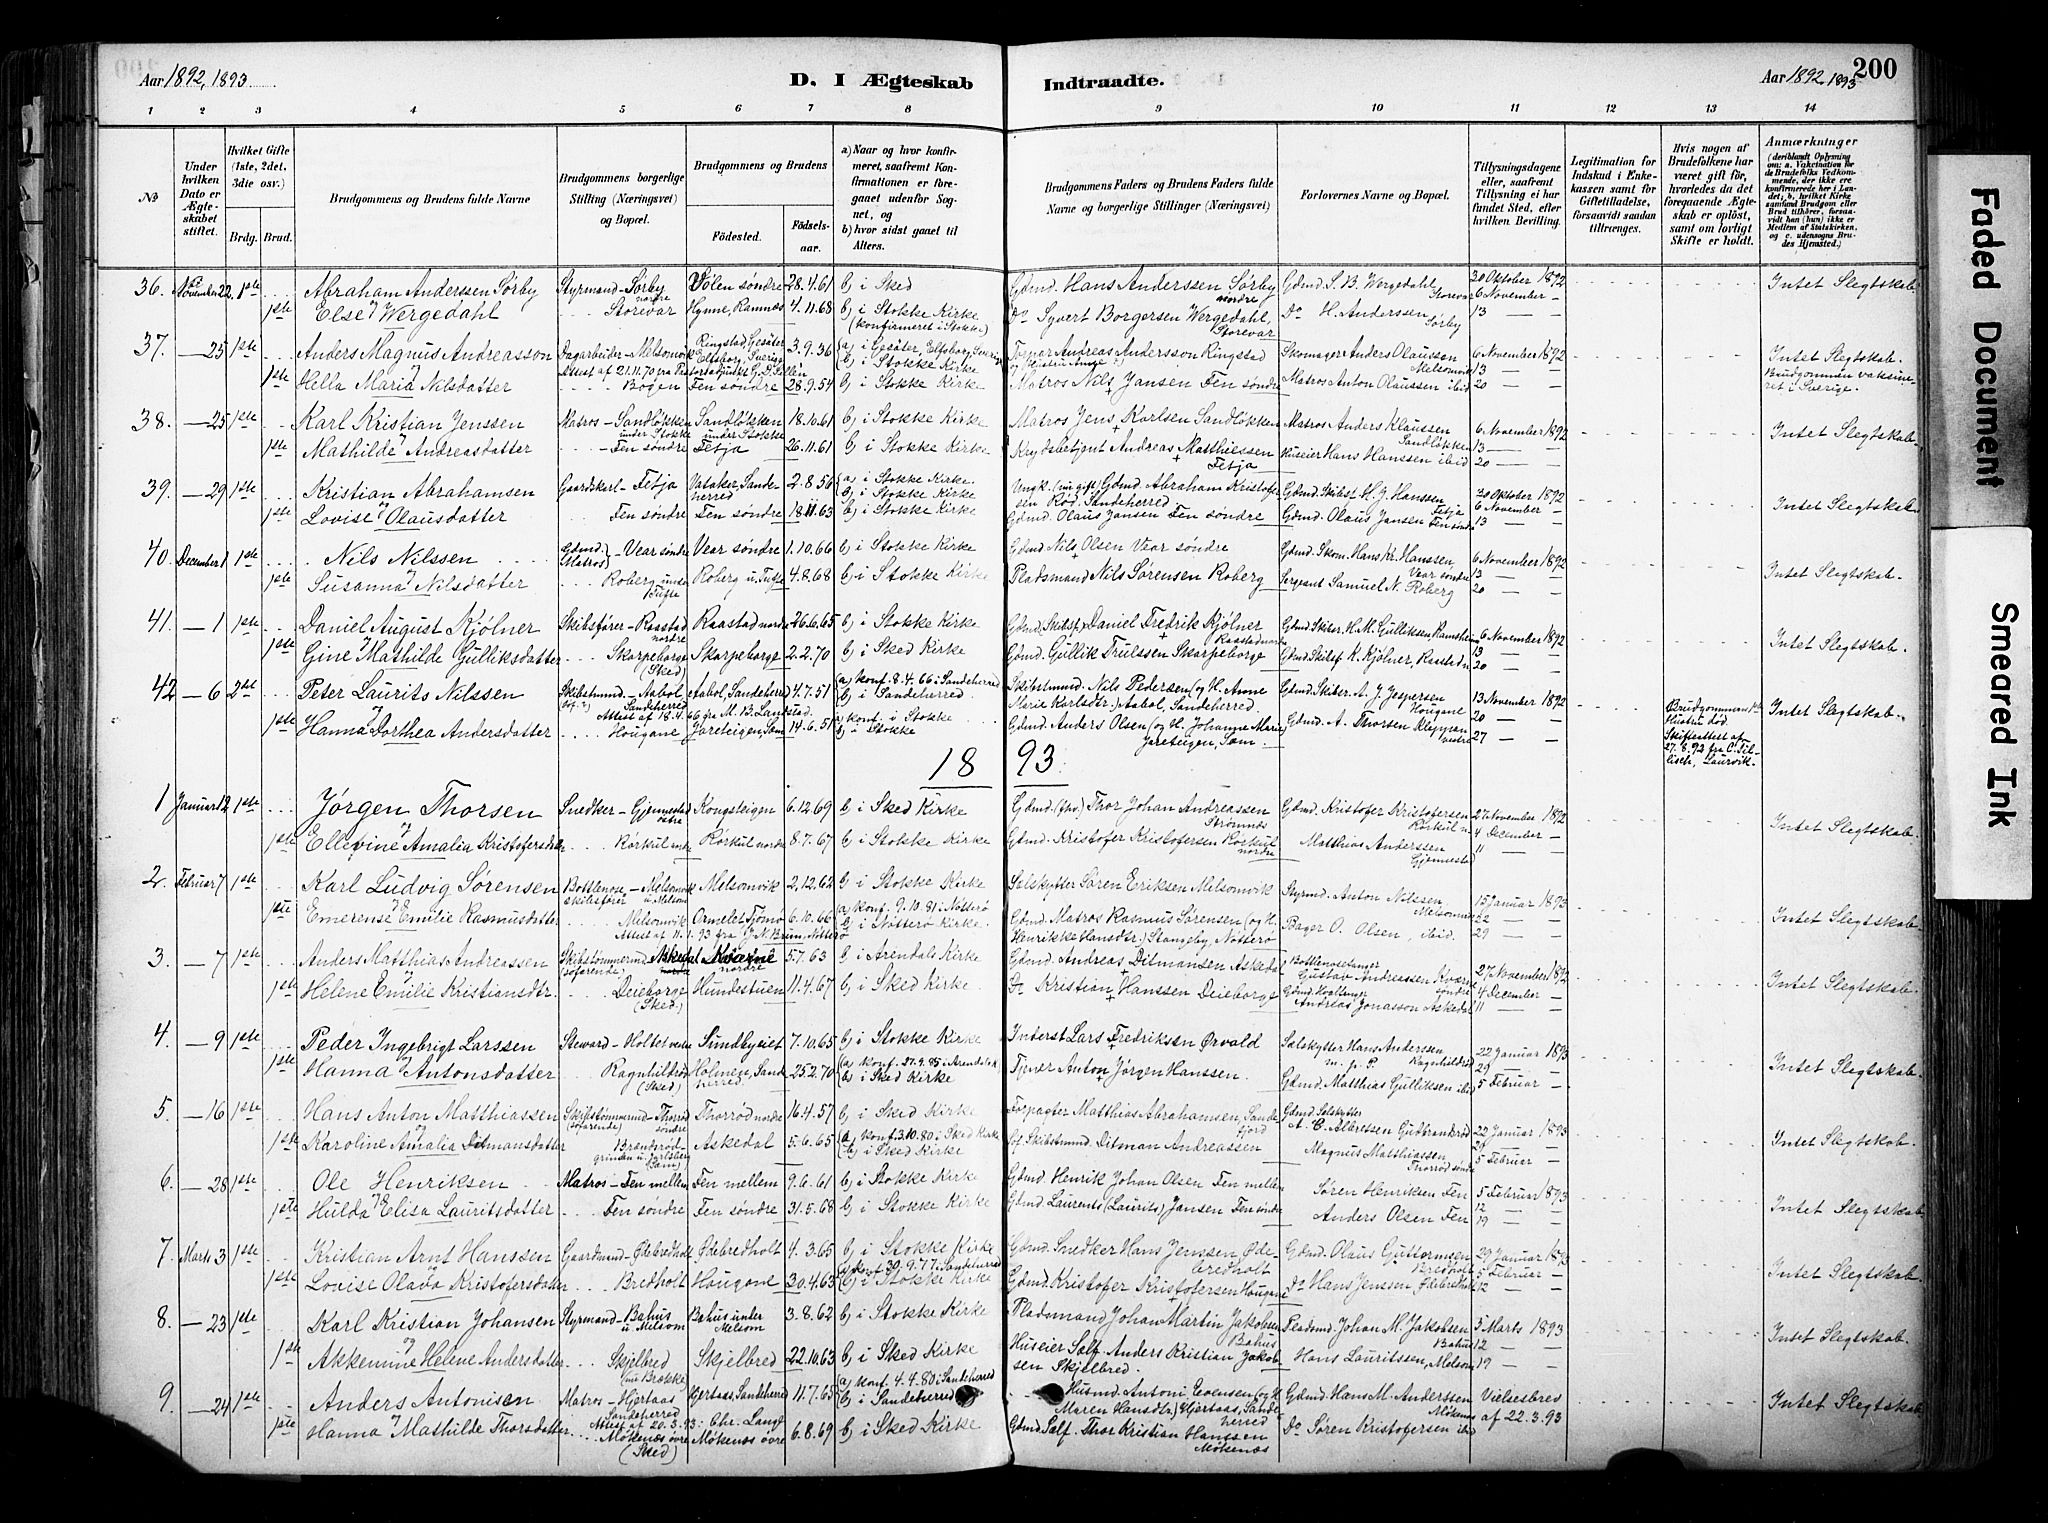 Aar 1892, 1893
D. I Ægteskab Indtraadte.
Aar 1892 1893
200
1 2 3 4 5 6 7 8 9 10 11 12 13 14
No
Under hvilken Dato er Ægteskabet stiftet.
Hvilket Gifte (1ste, 2det, 3die osv.)
Brdg. Brud.
Brudgommens og Brudens fulde Navne
Brudgommens borgerlige Stilling (Næringsvei) og Bopæl.
Brudgommens og Brudens
Fødested. Fødselsaar.
a) Naar og hvor konfirmeret, saafremt Konfirmationen er foregaaet udenfor Sognet, og
b) hvor sidst gaaet til Alters.
Brudgommens Faders og Brudens Faders fulde Navne og borgerlige Stillinger (Næringsvei)
Forlovernes Navne og Bopæl.
Tillysningsdagene eller, saafremt Tillysning ei har fundet Sted, efter hvilken Bevilling.
Legitimation for Indskud i Enkekassen samt for Giftetilladelse, forsaavidt saadan tiltrænges.
Hvis nogen af Brudefolkene har været gift før, hvorledes da det foregaaende Ægteskab er opløst, samt om lovligt Skifte er holdt.
Anmærkninger (deriblandt Oplysning om: a. Vakcination for de Brudefolks Vedkommende, der ikke ere konfirmerede her i Landet; b. hvilket Kirkesamfund Brudgom eller Brud tilhører, forsaavidt han (hun) ikke er Medlem af Statskirken, og c. udensogns Brudes Hjemsted.)
36. November 22. 1ste Abraham Anderssen Sørby Styrmand - Sørby nordre Solen søndre 28.4.61 b) i Sked Gdmd. Hans Anderssen Sørby nordre Gdmd. S. B. Wergedahl Storevar 30 Oktober 1892 Intet Slegtskab
1ste Else Wergedahl Storevar Hynne, Ramnæs 4.11.68 b) i Stokke Kirke (konfirmeret i Stokke) Do Syvert Borgersen Wergedahl, Storevar Do H. Anderssen Sørby 6 November 13
37. 25 1ste Anders Magnus Andreasson Dagarbeider - Melsomvik Ringstad, Gesäter Elfsborg, Sverige 3.9.36 a) i Gesäter, Elfsborg, Sverige b) i Stokke Kirke Andreas Andersson Ringstad Skomager Anders Olaussen Melsomvik 6 November 1892 Intet Slegtskab.
Attest af 21.11.70 fra
1ste Hella Maria Nilsdatter Bogen Fen søndre 28.9.54 b) i Stokke Kirke Matros Nils Jansen Fen søndre Matros Anton Olaussen ibid 13 20 Brudgommen vaksineret i Sverige.
38. 25 1ste Karl Kristian Jenssen Matros - Sandløkken under Stokke Sandløkken under Stokke 18.10.61 b) i Stokke Kirke Matros Jens Karlsen Sandløkken Matros Anders Klaussen Sandløkke 6 November 1892 Intet Slegtskab
1ste Mathilde Andreasdatter Fen søndre Fetja 26.11.61 b) i Stokke Kirke Krydsbetjent Andreas Matthiessen Fetja Huseier Hans Hanssen ibid 13 20
39. 29 1ste Kristian Abrahamsen Gaardskarl - Fetja Vataker, Sandeherred 2.8.56 a) i Stokke Kirke. b) i Stokke Kirke Ungk. Gdmd. Abraham Kristoffersen Rød, Sandeherred Gdmd. Skibst. H. J. Hanssen Fetja 30 Oktober 1892 Intet Slegtskab
1ste Lovise Olausdatter Fen søndre Fen søndre 18.11.63 b) i Stokke Kirke Gdmd. Olaus Jansen Fen søndre Gdmd. Olaus Jansen Fen søndre 6 November 13
40. December 1 1ste Nils Nilssen Gdmd. Matros - Vear søndre Vear søndre 1.10.66 b) i Stokke Kirke Gdmd. Nils Olsen Vear søndre Gdmd. Skom. Hans Kr. Hanssen, Vear søndre 6 November 1892 Intet Slegtskab
1ste Susanna Nilsdatter Roberg under Tufte Roberg u. Tufte 4.8.68 b) i Stokke Kirke Pladsmand Nils Sørensen Roberg Sergeant Samuel N. Roberg 13 20
41. 1 1ste Daniel August Kjølner Skibsfører - Raastad nordre Raastad nordre 26.6.65 b) i Stokke Kirke Gdmd. Skibsf. Daniel Fredrik Kjølner Raastad nordre Gdmd. Skiber. H. M. Gulliksen 6 November 1892 Intet Slegtskab
1ste Gine Mathilde Gulliksdatter Skorpeborge (Sked) Skorpeborge 2.2.70 b) i Sked Kirke Gdmd. Gullik Trulssen Skorpeborge Gdmd. Skibsf. K. Kjølner, Raastad n. 13 20
42 6 2det Peter Laurits Nilssen Skibstmnd. - Aabol Sandeherred Aabol, Sandeherred 4.7.51 a) konf. 8.4.66 i Sandeherred b) i Sandeherred. Skibstmnd. Nils Pedersen (og H. Anne Marie Karlsdtr.) Aabol, Sandeherred. Gdmd. Skiber. A. J. Jespersen Hougane 13 November 1892 Brudgommens 1ste Hustru død. Skifteattest af 27.8.92 fra C. Laurvik. Intet Slegtskab
Attest af 18.4.66 fra M. B. Landstad.
1ste Hanna Dorthea Andersdatter Hougane Jareteigen, Sem 14.6.51 a) konf. i Stokke b) Stokke Gdmd. Anders Olsen (og H. Johanne Marie) Jareteigen, Sem Gdmd. A. Thorsen Kleppan vestre 20 27
1893
1 Januar 12 1ste Jørgen Thorsen Snedker - Gjennestad vestre Kongsteigen 6.12.69 b) i Sked Kirke Gdmd. Thor Johan Andreassen Strømnæs Gdmd. Kristofer Kristofersen Rørkul n. 27 November 1892 Intet Slegtskab
1ste Ellevine Amalia Kristofersdatter Rørkul ndr. Rørkul nordre 8.7.67 b) i Stokke Kirke Gdmd. Kristofer Kristofersen Rørkul nordre Matthias Anderssen Gjennestad 4 December 11
2. Februar 7 1ste Karl Ludvig Sørensen Bottlenose skibsfører - Melsomvik u. Melsom Melsomvik 2.12.62 b) i Stokke Kirke Sælskytter Søren Eriksen Melsomvik Styrmd. Anton Nilssen Melsomvik 15 Januar 1893 Intet Slegtskab
1ste Emerense Emilie Rasmusdatter Melsomvik Ormelet, Tjømø 6.10.66 a) konf. 9.10.81 i Nøtterø b) i Nøtterø Kirke. Gdmd. Matros Rasmus Sørensen (og H. Henrikke Hansdtr.) Stangeby, Nøtterø Bager O. Olsen, ibid. 22 29
Attest af 11.1.93 fra J. N. Bruun, Nøtterø
3. 7 1ste Anders Matthias Andreassen Skibstømmermd. (søfarende) Askedal nordre Kværne nordre 5.7.63 b) i Arendals Kirke Gdmd. Andreas Ditmansen Askedal Bottlenosefanger Gustav Andreassen Kværne søndre 27 November 1892 Intet Slegtskab
1ste Helene Emilie Kristiansdtr. Deieborge (Sked) Hundestuen 11.4.67 b) i Sked Kirke Kristian Hanssen Deieborge Gdmd. Hvalfanger Andreas Jonasson Askedal 4 December 11
4. 9 1ste Peder Ingebrigt Larssen Steward - Holtet vestre Sundbyeiet 7.10.65 b) i Stokke Kirke Inderst Lars Fredriksen Ørvald Sælskytter Hans Anderssen Ragnhildrød 22 Januar 1893 Intet Slegtskab
1ste Hanna Antonsdatter Ragnhildrød (Sked) Holmene, Sandeherred 25.2.70 a) konf. 27.9.85 i Arendal b) i Sked Kirke Tjener Anton Jørgen Hanssen. Gdmd. Matthias Gulliksen ibid 29 5 Februar
5. 16 1ste Hans Anton Matthiassen Skibstømmermd. (søfarende) - Thorrød søndre Thorrød nordre 16.4.57 b) i Stokke Kirke Forpagter Matthias Abrahamsen, Sandefjord Gdmd. Sælskytter A. C. Albretsen Gudbrandsrød 22 Januar 1893 Intet Slegtskab
1ste Karoline Amalia Ditmansdatter Brandrødgrinden u. Jarlsberg (Sem) Askedal 5.6.65 a) konf. 3.10.80 i Sked Kirke b) i Sked Kirke Skibstmnd. Ditman Andreassen Magnus Matthiassen Thorrød søndre 29 5 Februar
6. 28 1ste Ole Henriksen Matros - Fen mellem Fen mellem 9.6.61 b) i Stokke Kirke Gdmd. Henrik Johan Olsen Fen mellem Søren Henriksen Fen 5 Februar 1893 Intet Slegtskab
1ste Hulda Elisa Lauritsdatter Fen søndre Fen søndre 31.5.68 b) i Stokke Kirke Gdmd. Laurents (Laurits) Jansen Fen søndre Anders Olsen Fen 12 19
7. Marts 3 1ste Kristian Arnt Hanssen Gaardmand - Ødebredholt Ødebredholt 4.3.65 b) i Stokke Kirke Gdmd. Snedker Hans Jenssen Ødebredholt Gdmd. Olaus Guttormsen Bredholt 29 Januar 1893 Intet Slegtskab
1ste Lovise Olava Kristofersdatter Bredholt Hougane 30.4.63 a) konf. 30.9.77 i Sandeherred b) i Stokke Kirke Gdmd. Kristofer Kristofersen Hougane Do Hans Jenssen Ødebredholt 5 Februar 12
8. 23 1ste Karl Kristian Johansen Styrmand - Bahus u. Melsom Bahus under Melsom 3.8.62 b) i Stokke Kirke Pladsmand Johan Martin Jakobsen Bahus Pladsmd. Johan M. Jakobsen Bahus 5 Marts 1893 Intet Slegtskab
1ste Akkemine Helene Andersdatter Skjelbred (nu Brække) Skjelbred 22.10.63 b) i Sked Kirke Huseier Self. Anders Kristian Jakobsen Skjelbred. Hans Lauritssen, Melsom 12 19
9. 24 1ste Anders Antonisen Matros - Hjertaas Sandeherred Hjertaas, Sandeherred 11.7.65 a) konf. 4.4.80 i Sandeherred b) i Sandeherred Husmd. Antoni Evensen (og H. Maren Hansdtr.) Hjertaas, Sandeherred Gdmd. Hans M. Anderssen Møkenæs Vielsesbrev af 22.3.93 Intet Slegtskab
Attest af 20.3.93: Chr. Lange
1ste Hanna Mathilde Thorsdatter Møkenæs øvre (Sked) Møkenæs øvre 6.8.69 b) i Sked Kirke Gdmd Self. Thor Kristian Hanssen Møkenæs Do Søren Kristofersen ibid
Faded Document
Smeared Ink